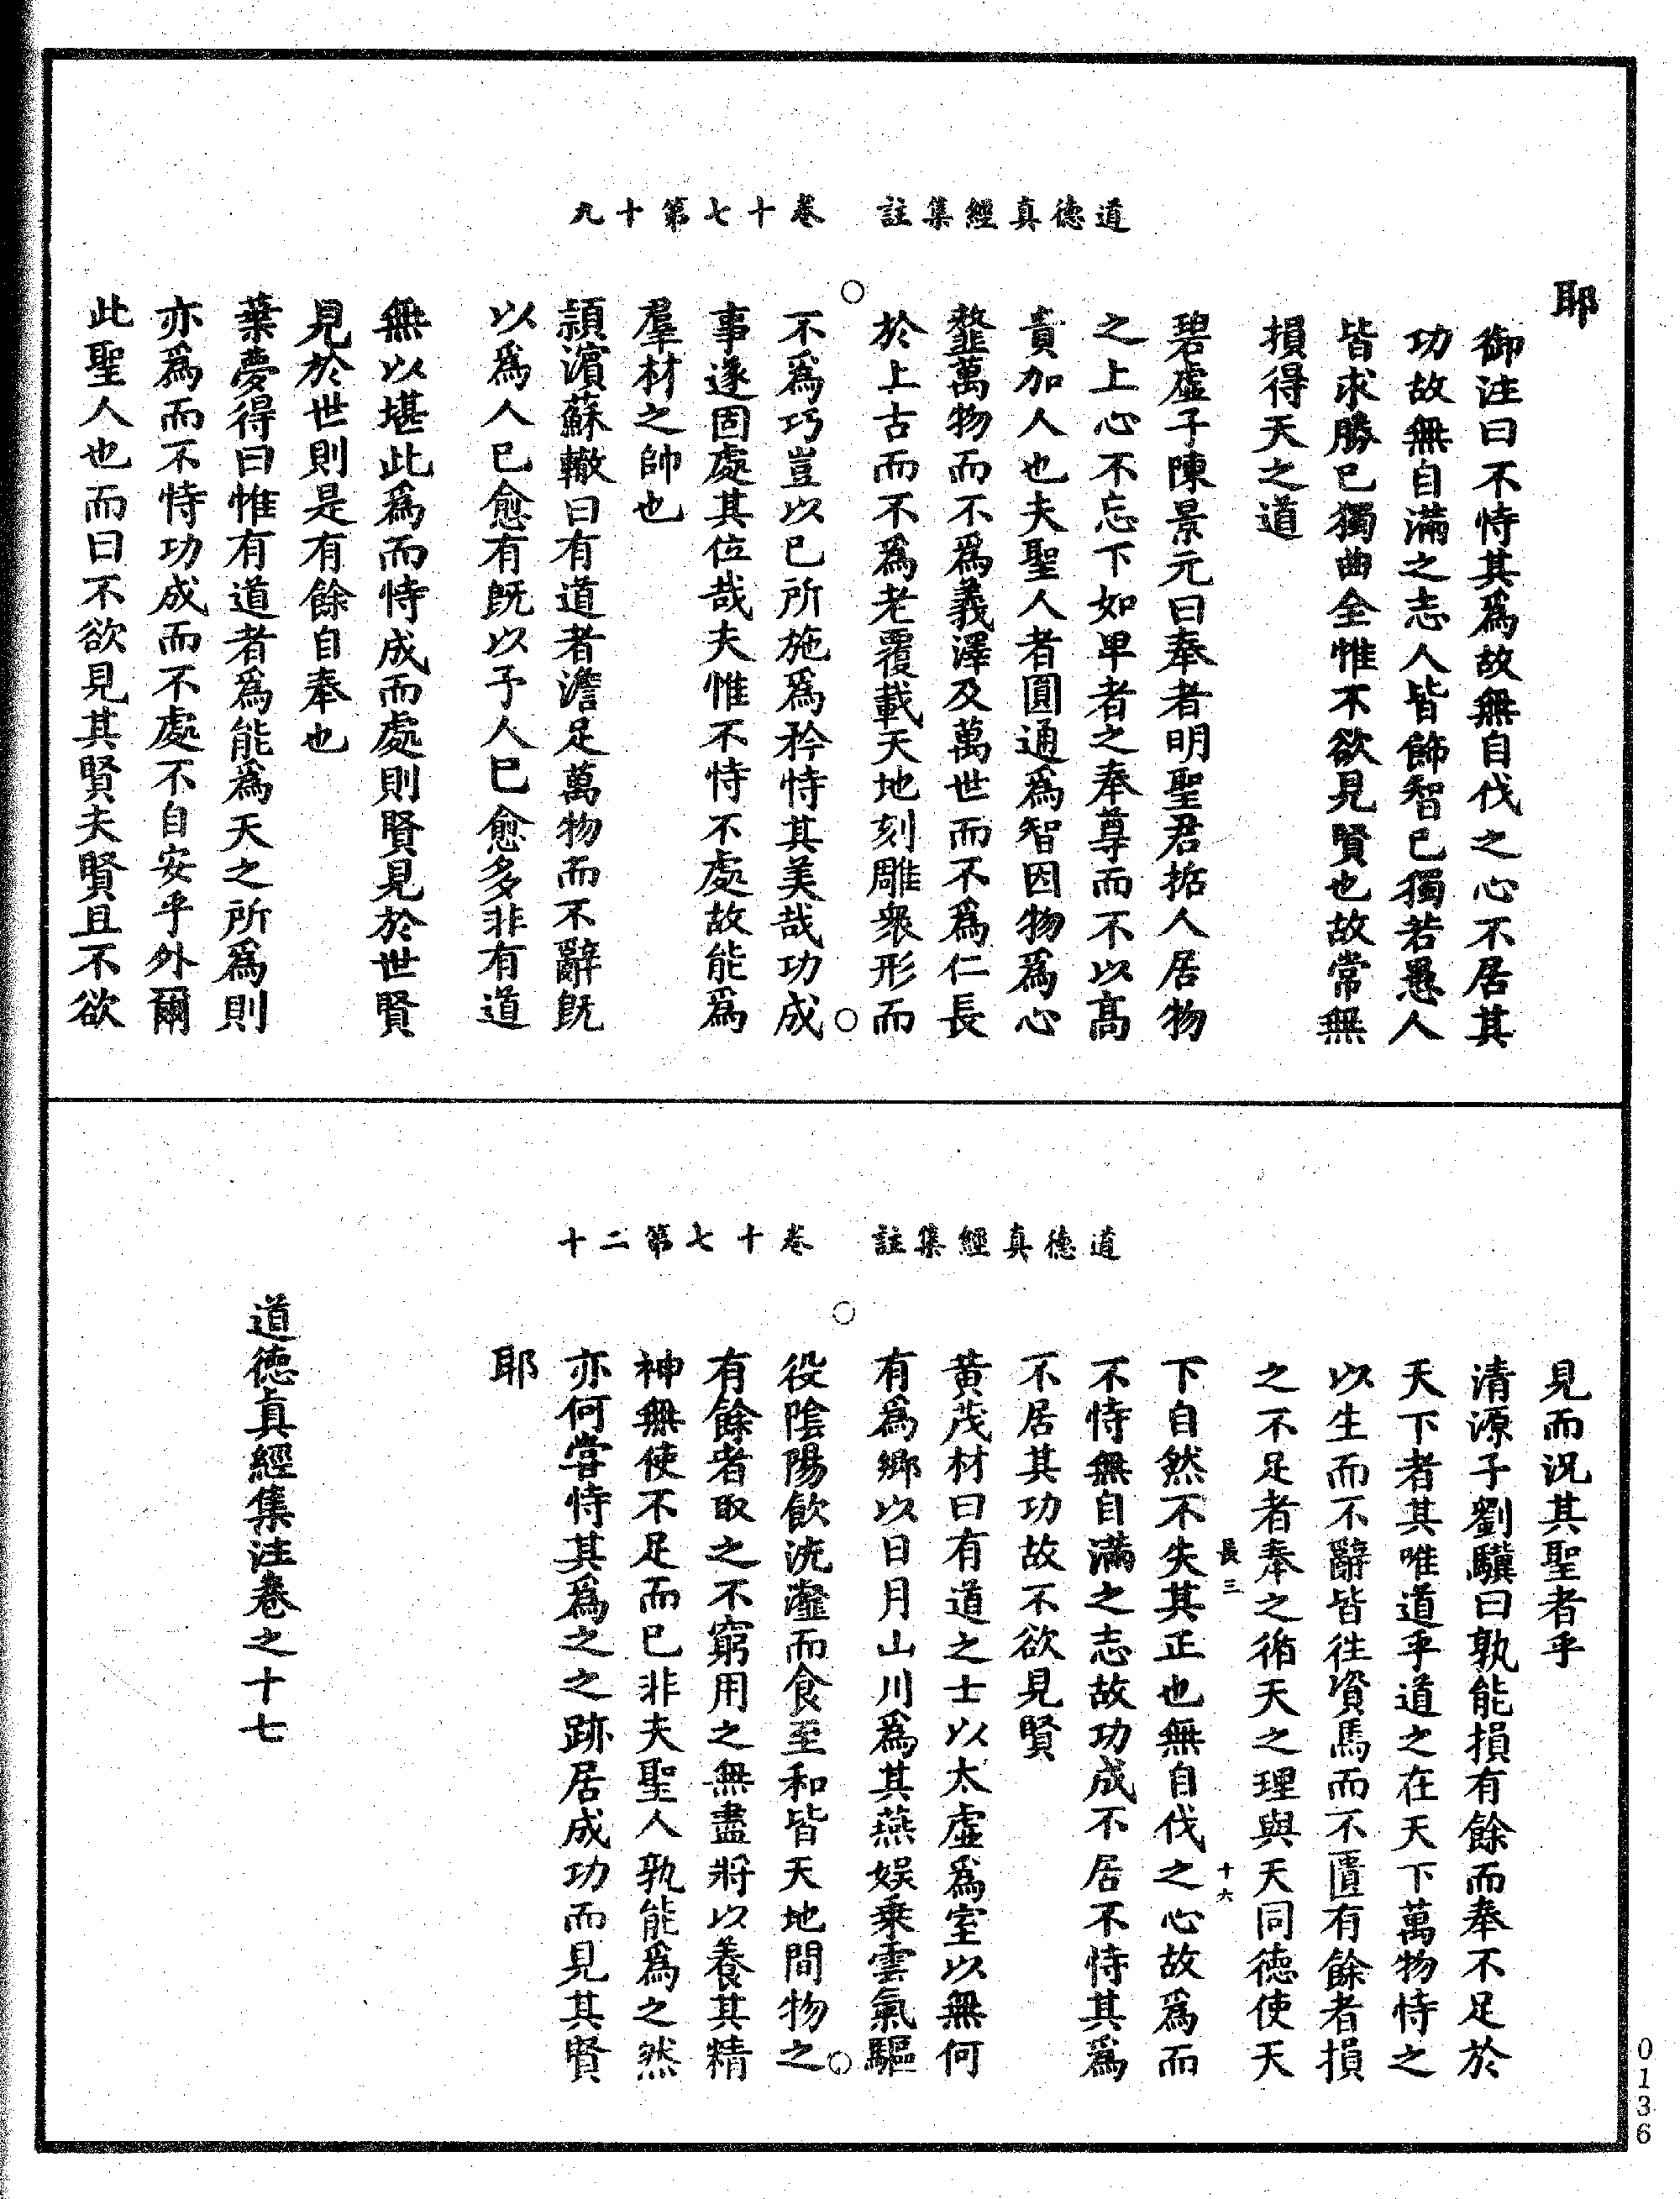 道德真經集註　卷十七第十九
耶
御注曰不恃其爲故無自伐之心不居其
功故無自滿之志人皆飾智已獨若愚人
皆求勝已獨曲全惟不欲見賢也故常無
損得天之道
碧虛子陳景元曰奉者明聖君括人居物
之上心不忘下如卑者之奉尊而不以高
貴加人也夫聖人者圓通爲智因物爲心
䪡萬物而不爲義澤及萬世而不爲仁長
於上古而不爲老覆載天地刻雕衆形而
不爲巧豈以已所施爲矜恃其美哉功成
事遂固處其位哉夫惟不恃不處故能爲
羣材之帥也
頴濵蘇轍曰有道者澹足萬物而不辭旣
以爲人已愈有旣以予人已愈多非有道
無以堪此爲而恃成而處則賢見於世賢
見於世則是有餘自奉也
葉夢得曰惟有道者爲能爲天之所爲則
亦爲而不恃功成而不處不自安乎外爾
此聖人也而曰不欲見其賢夫賢且不欲
道德真經集註　卷十七第二十
見而況其聖者乎
清源子劉驥曰孰能損有餘而奉不足於
天下者其唯道乎道之在天下萬物恃之
以生而不辭皆徃資焉而不匱有餘者損
之不足者奉之循天之理與天同德使天
長三　十六
下自然不失其正也無自伐之心故爲而
不恃無自滿之志故功成不居不恃其爲
不居其功故不欲見賢
黃茂材曰有道之士以太虛爲室以無何
有爲鄉以日月山川爲其燕娛乗雲氣驅
役陰陽飲沆瀣而食至和皆天地間物之
有餘者取之不窮用之無盡將以養其精
神無使不足而已非夫聖人孰能爲之然
亦何嘗恃其爲之之跡居成功而見其賢
耶
道德真經集註卷之十七
0136